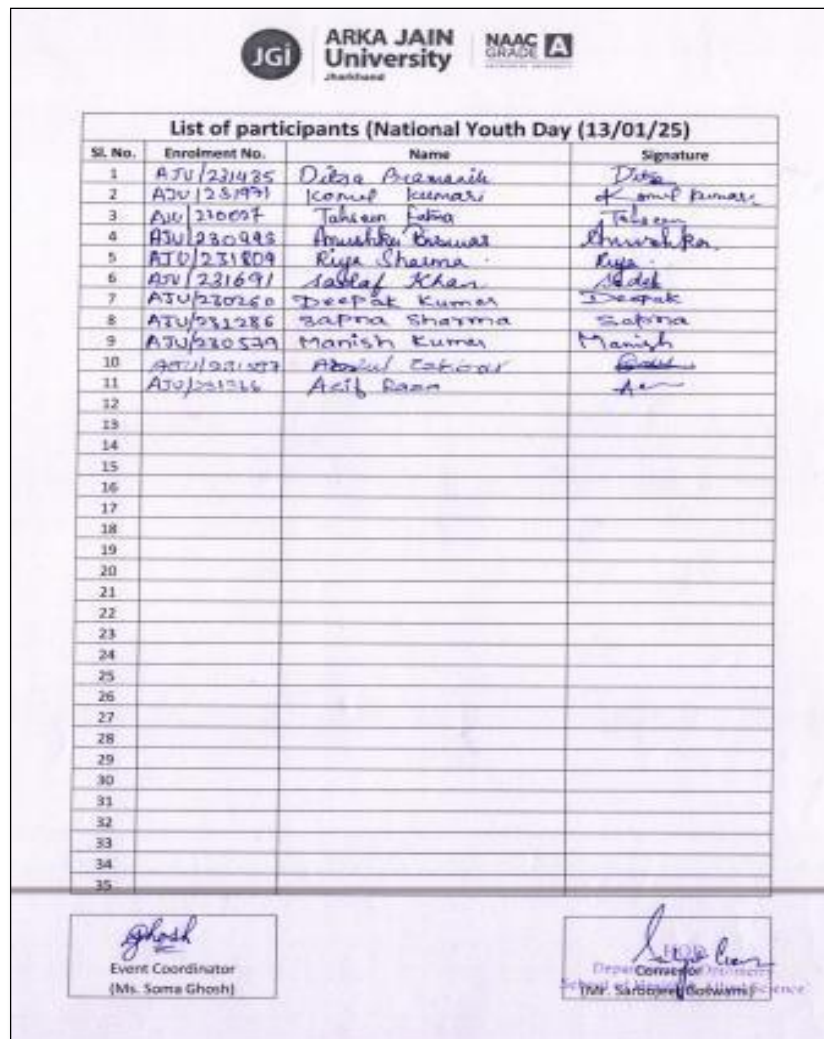 JGi ARKA JAIN University Jharkhand NAAC GRADE A
List of participants (National Youth Day (13/01/25)
Sl. No. Enrolment No. Name Signature
1 AJU/231435 Ditsa Pramanik Ditsa
2 AJU/231971 Komal Kumari Komal Kumari
3 AJU/230097 Tahseen Fatma Tahseen
4 AJU/230995 Anushka Biswas Anushka
5 AJU/231809 Riya Sharma Riya
6 AJU/231691 Sadaf Khan Sadaf
7 AJU/230260 Deepak Kumar Deepak
8 AJU/231286 Sapna Sharma Sapna
9 AJU/230579 Manish Kumar Manish
10
11 Asif
12
13
14
15
16
17
18
19
20
21
22
23
24
25
26
27
28
29
30
31
32
33
34
35
Ghosh
Event Coordinator
(Ms. Soma Ghosh)
HOD
Convenor
(Mr. Sarbojeet Goswami)